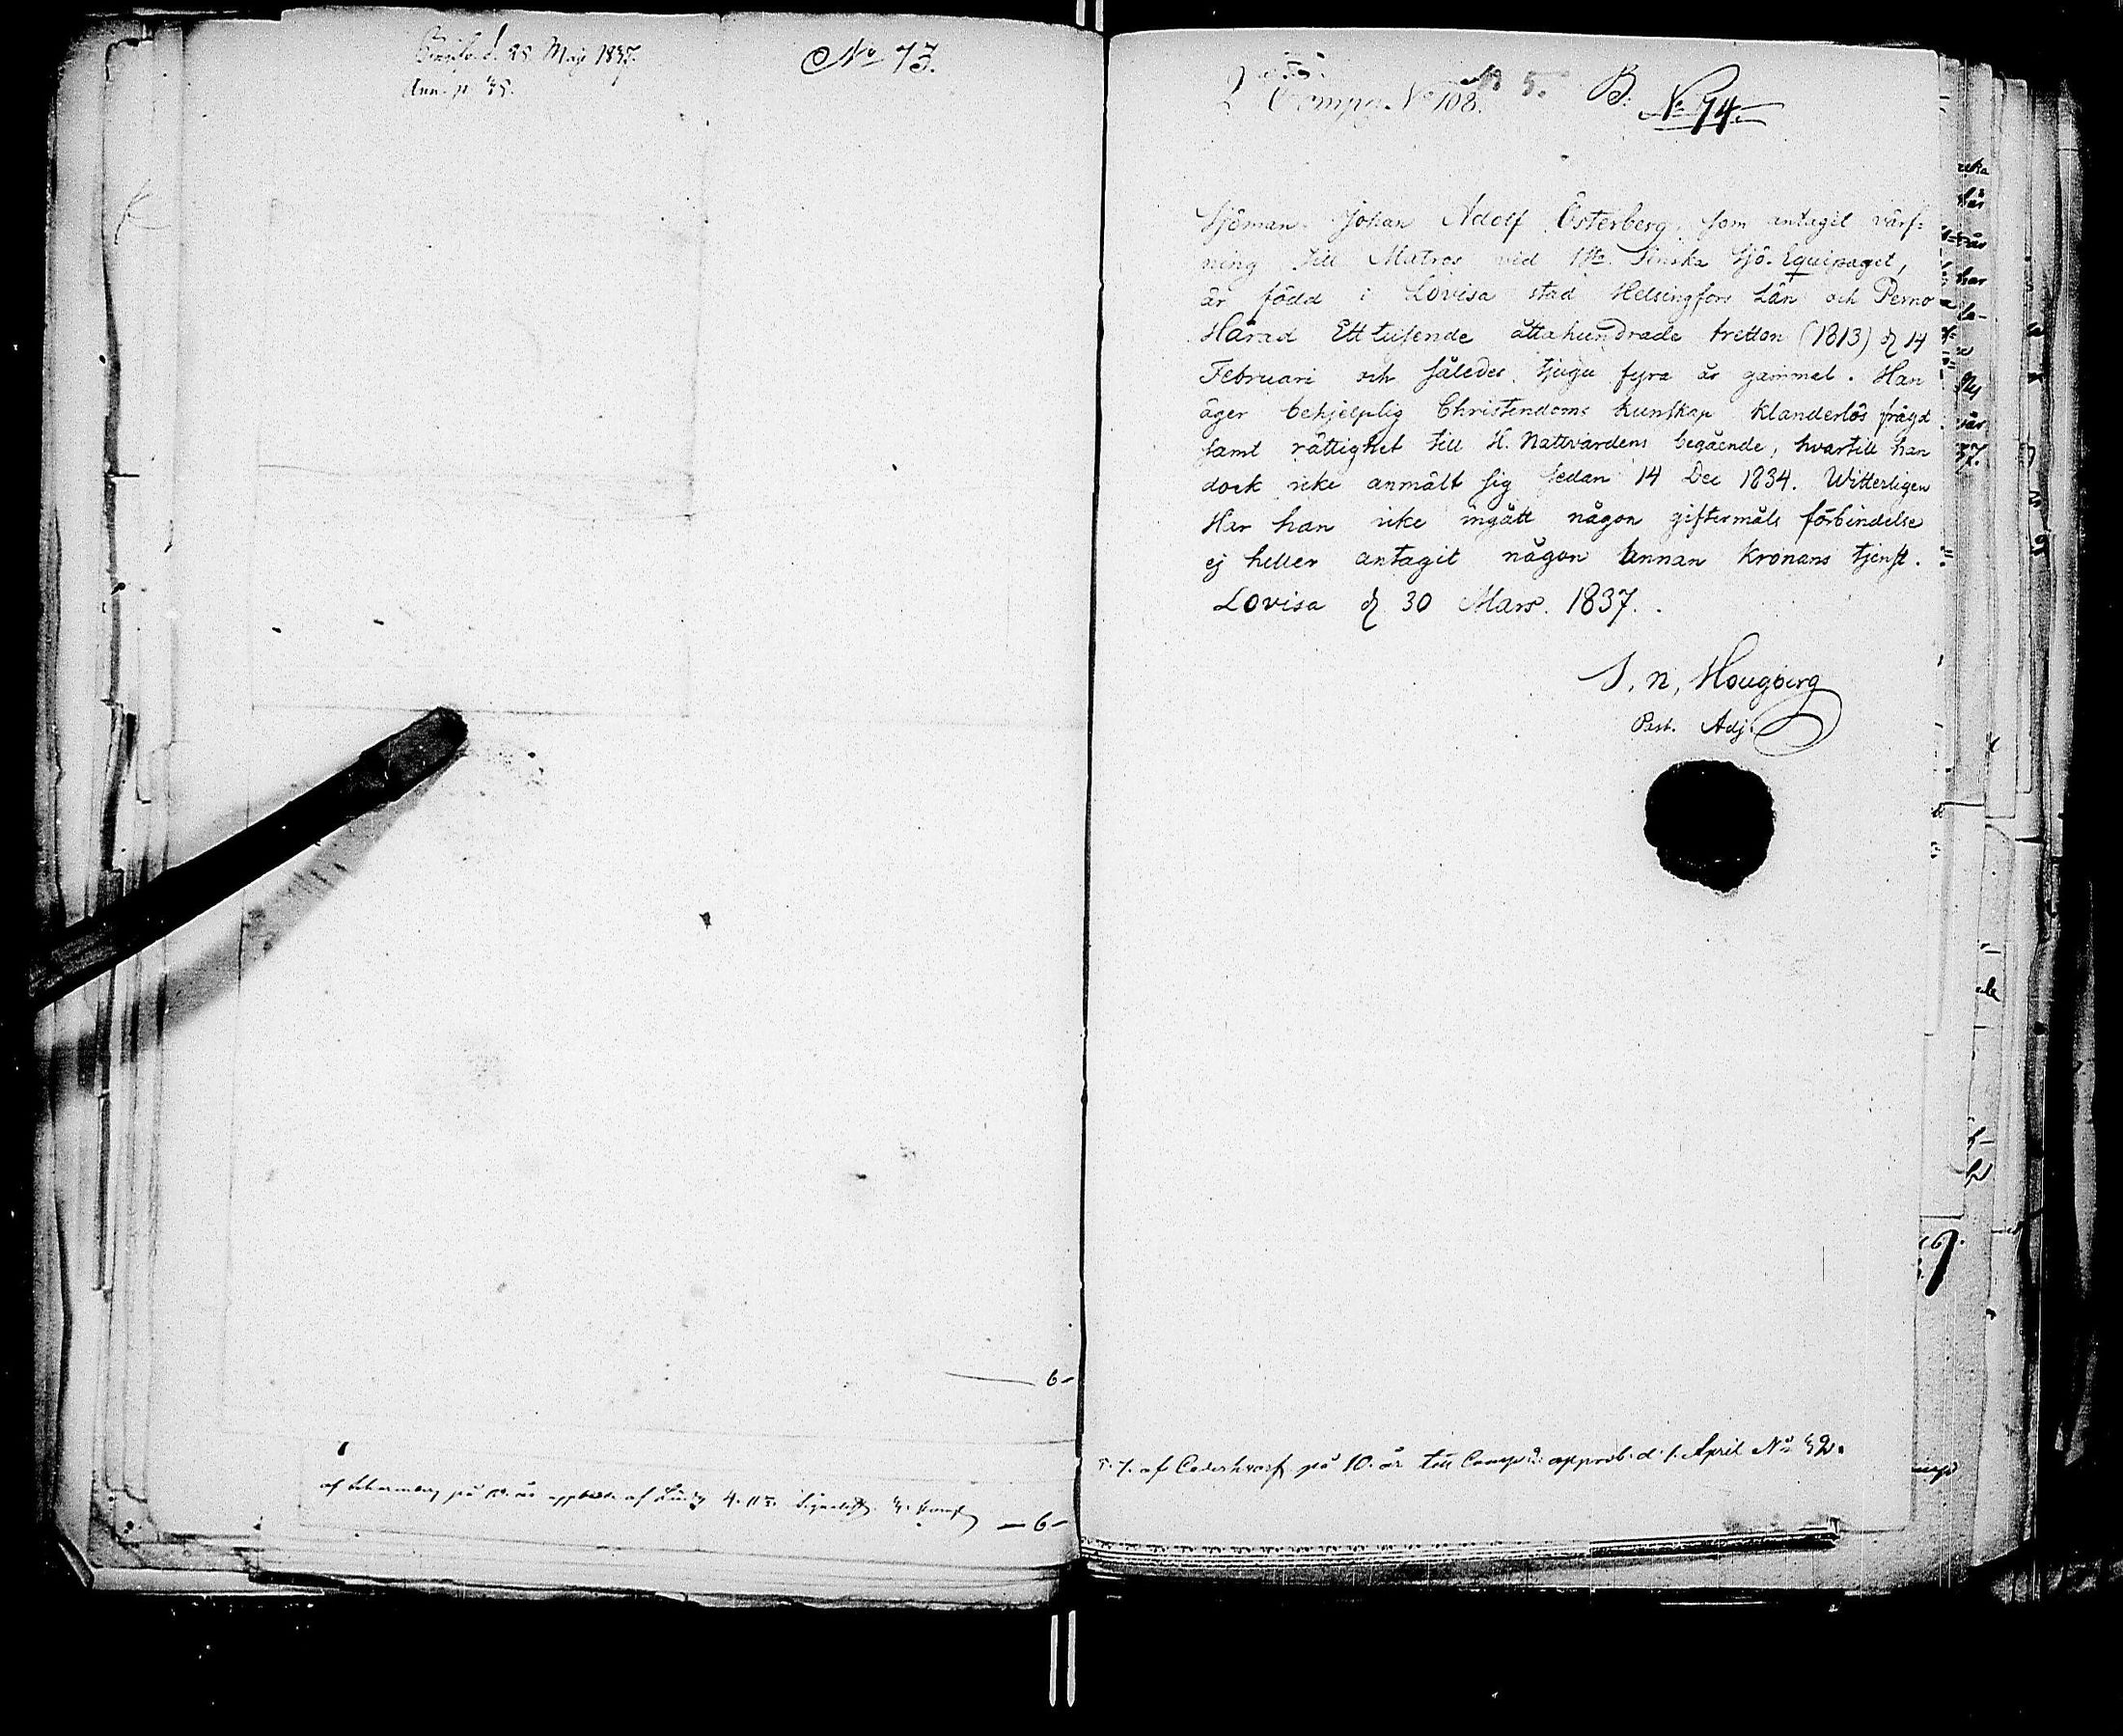 d. 28 Maji 1837.
No 73.
2 Comp. No 108.
No 5. B:
No 74.
Sjöman Johan Adolf Österberg, som antagit värf=
ning till Matros vid 1sta Finska Sjö-Equipaget,
är född i Lovisa stad Helsingfors Län och Perno
Härad Ett tusende åttahundrade tretton (1813) d 14
Februari och således tjugu fyra år gammal. Han
äger behjelplig Christendoms kunskap klanderlös frägd
samt rättighet till H. Nattvardens begående, hvartill han
dock icke anmält sig sedan 14 Dec 1834. Witterligen
Har han icke ingått någon giftermåls förbindelse
ej heller antagit någon annan Kronans tjenst.
Lovisa d 30 Mars. 1837.
Past. Adj.
6-
af på 10. år till Comp. approb. d. 1. April No 32.
6-